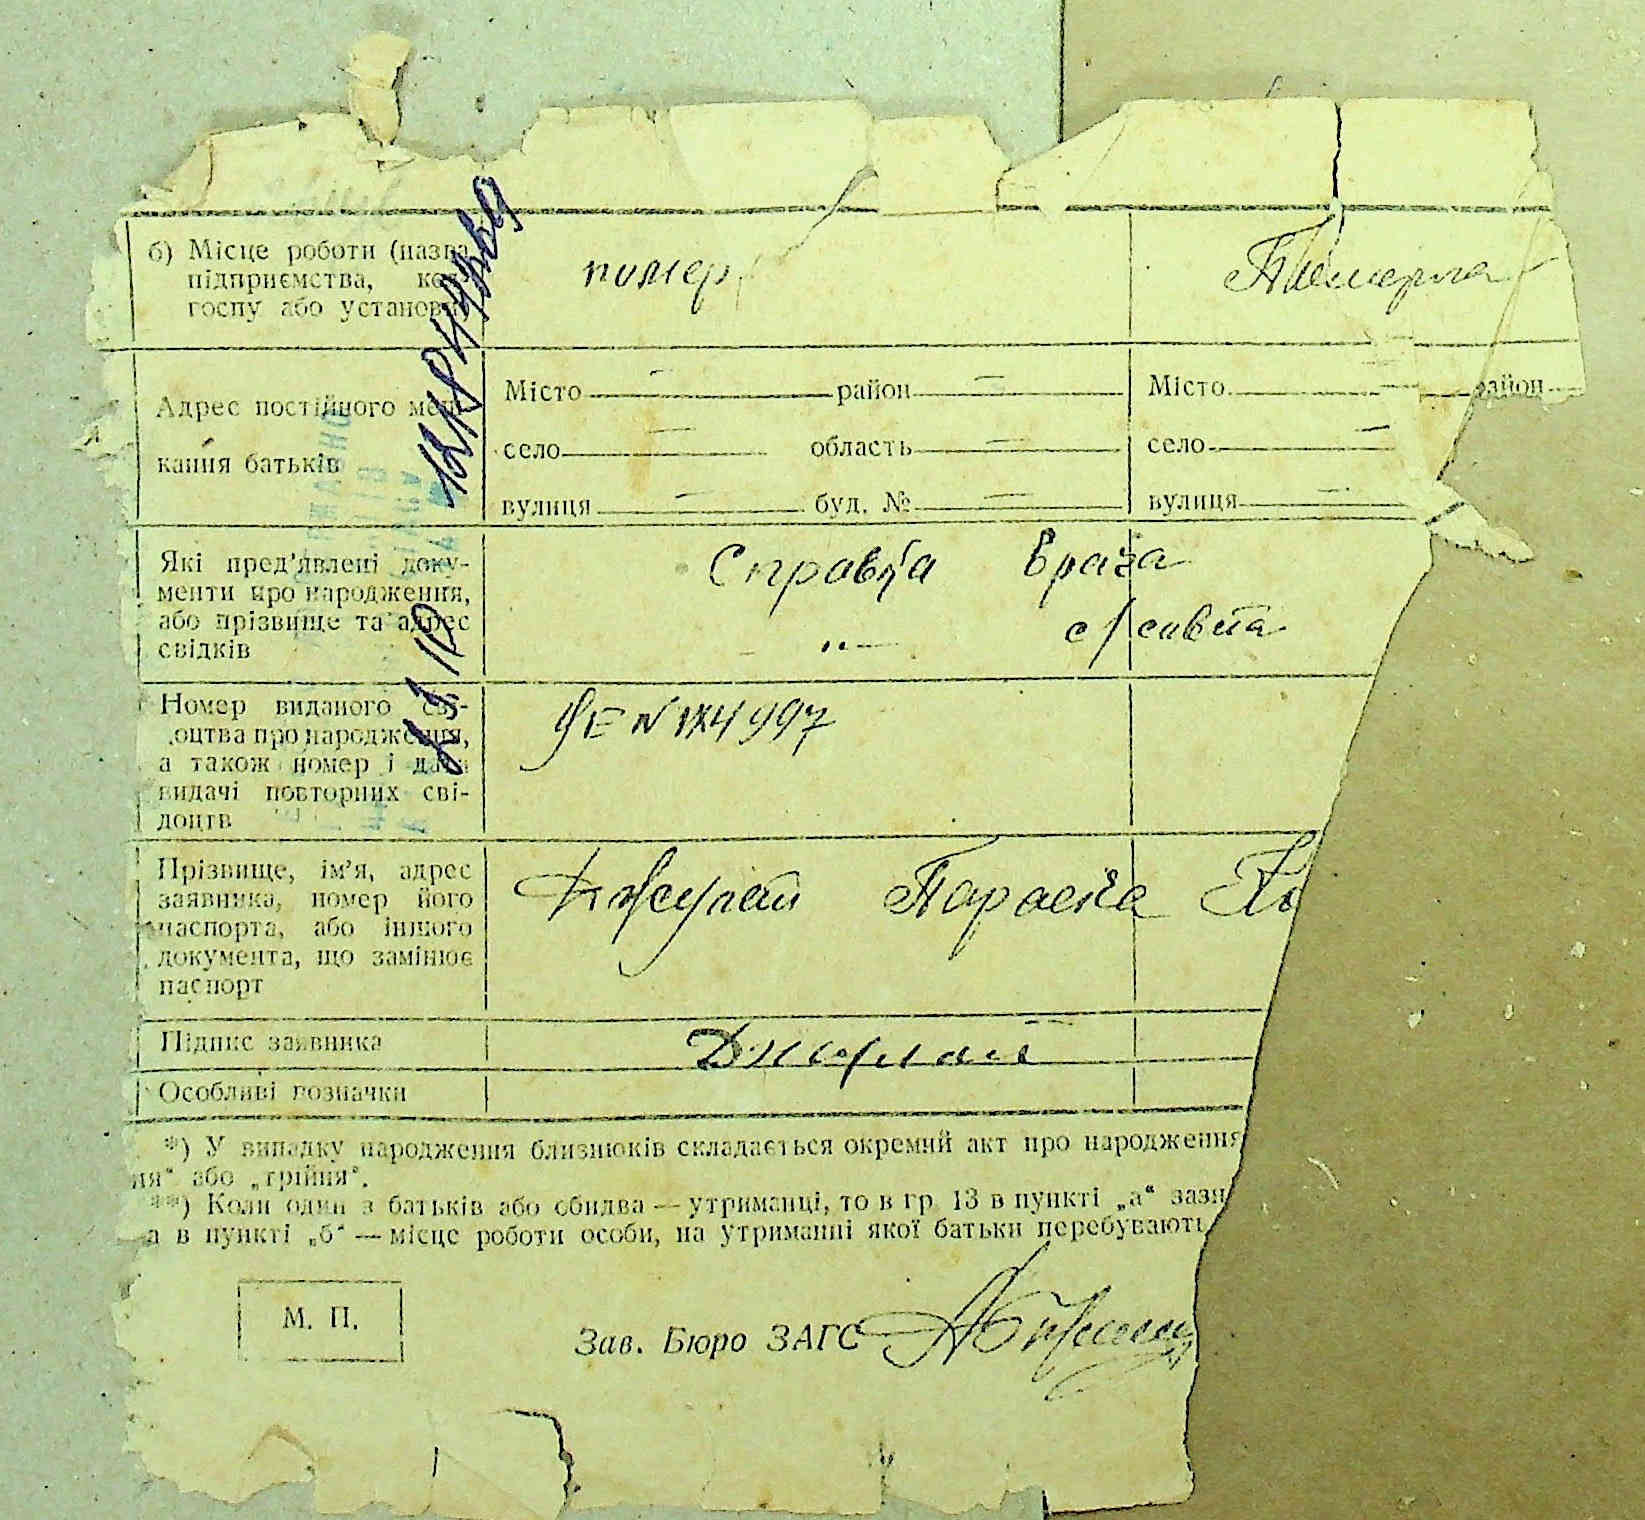 б) Місце роботи (назва помер Померла
підприємства, кол-
госпу або установи)
Адрес постійного меш-
кання батьків
Місто район Місто район
село область село
вулиця буд. № вулиця
Які пред'явлені доку-
менти про народження,
або прізвище та адрес
свідків
Справка врача
„ — с/совета
Номер виданого сві-
оцтва про народження,
а також номер і дата
видачі повторних сві-
доцтв
Прізвище, ім'я, адрес
заявника, номер його
паспорта, або іншого
документа, що замінює
паспорт
Параска
Підпис заявника
Особливі позначки
*) У випадку народження близнюків складається окремий акт про народження
ня" або „трійня".
**) Коли один з батьків або обидва — утриманці, то в гр. 13 в пункті „а" зазн
а в пункті „б" — місце роботи особи, на утриманні якої батьки перебувають
М. П.
Зав. Бюро ЗАГС